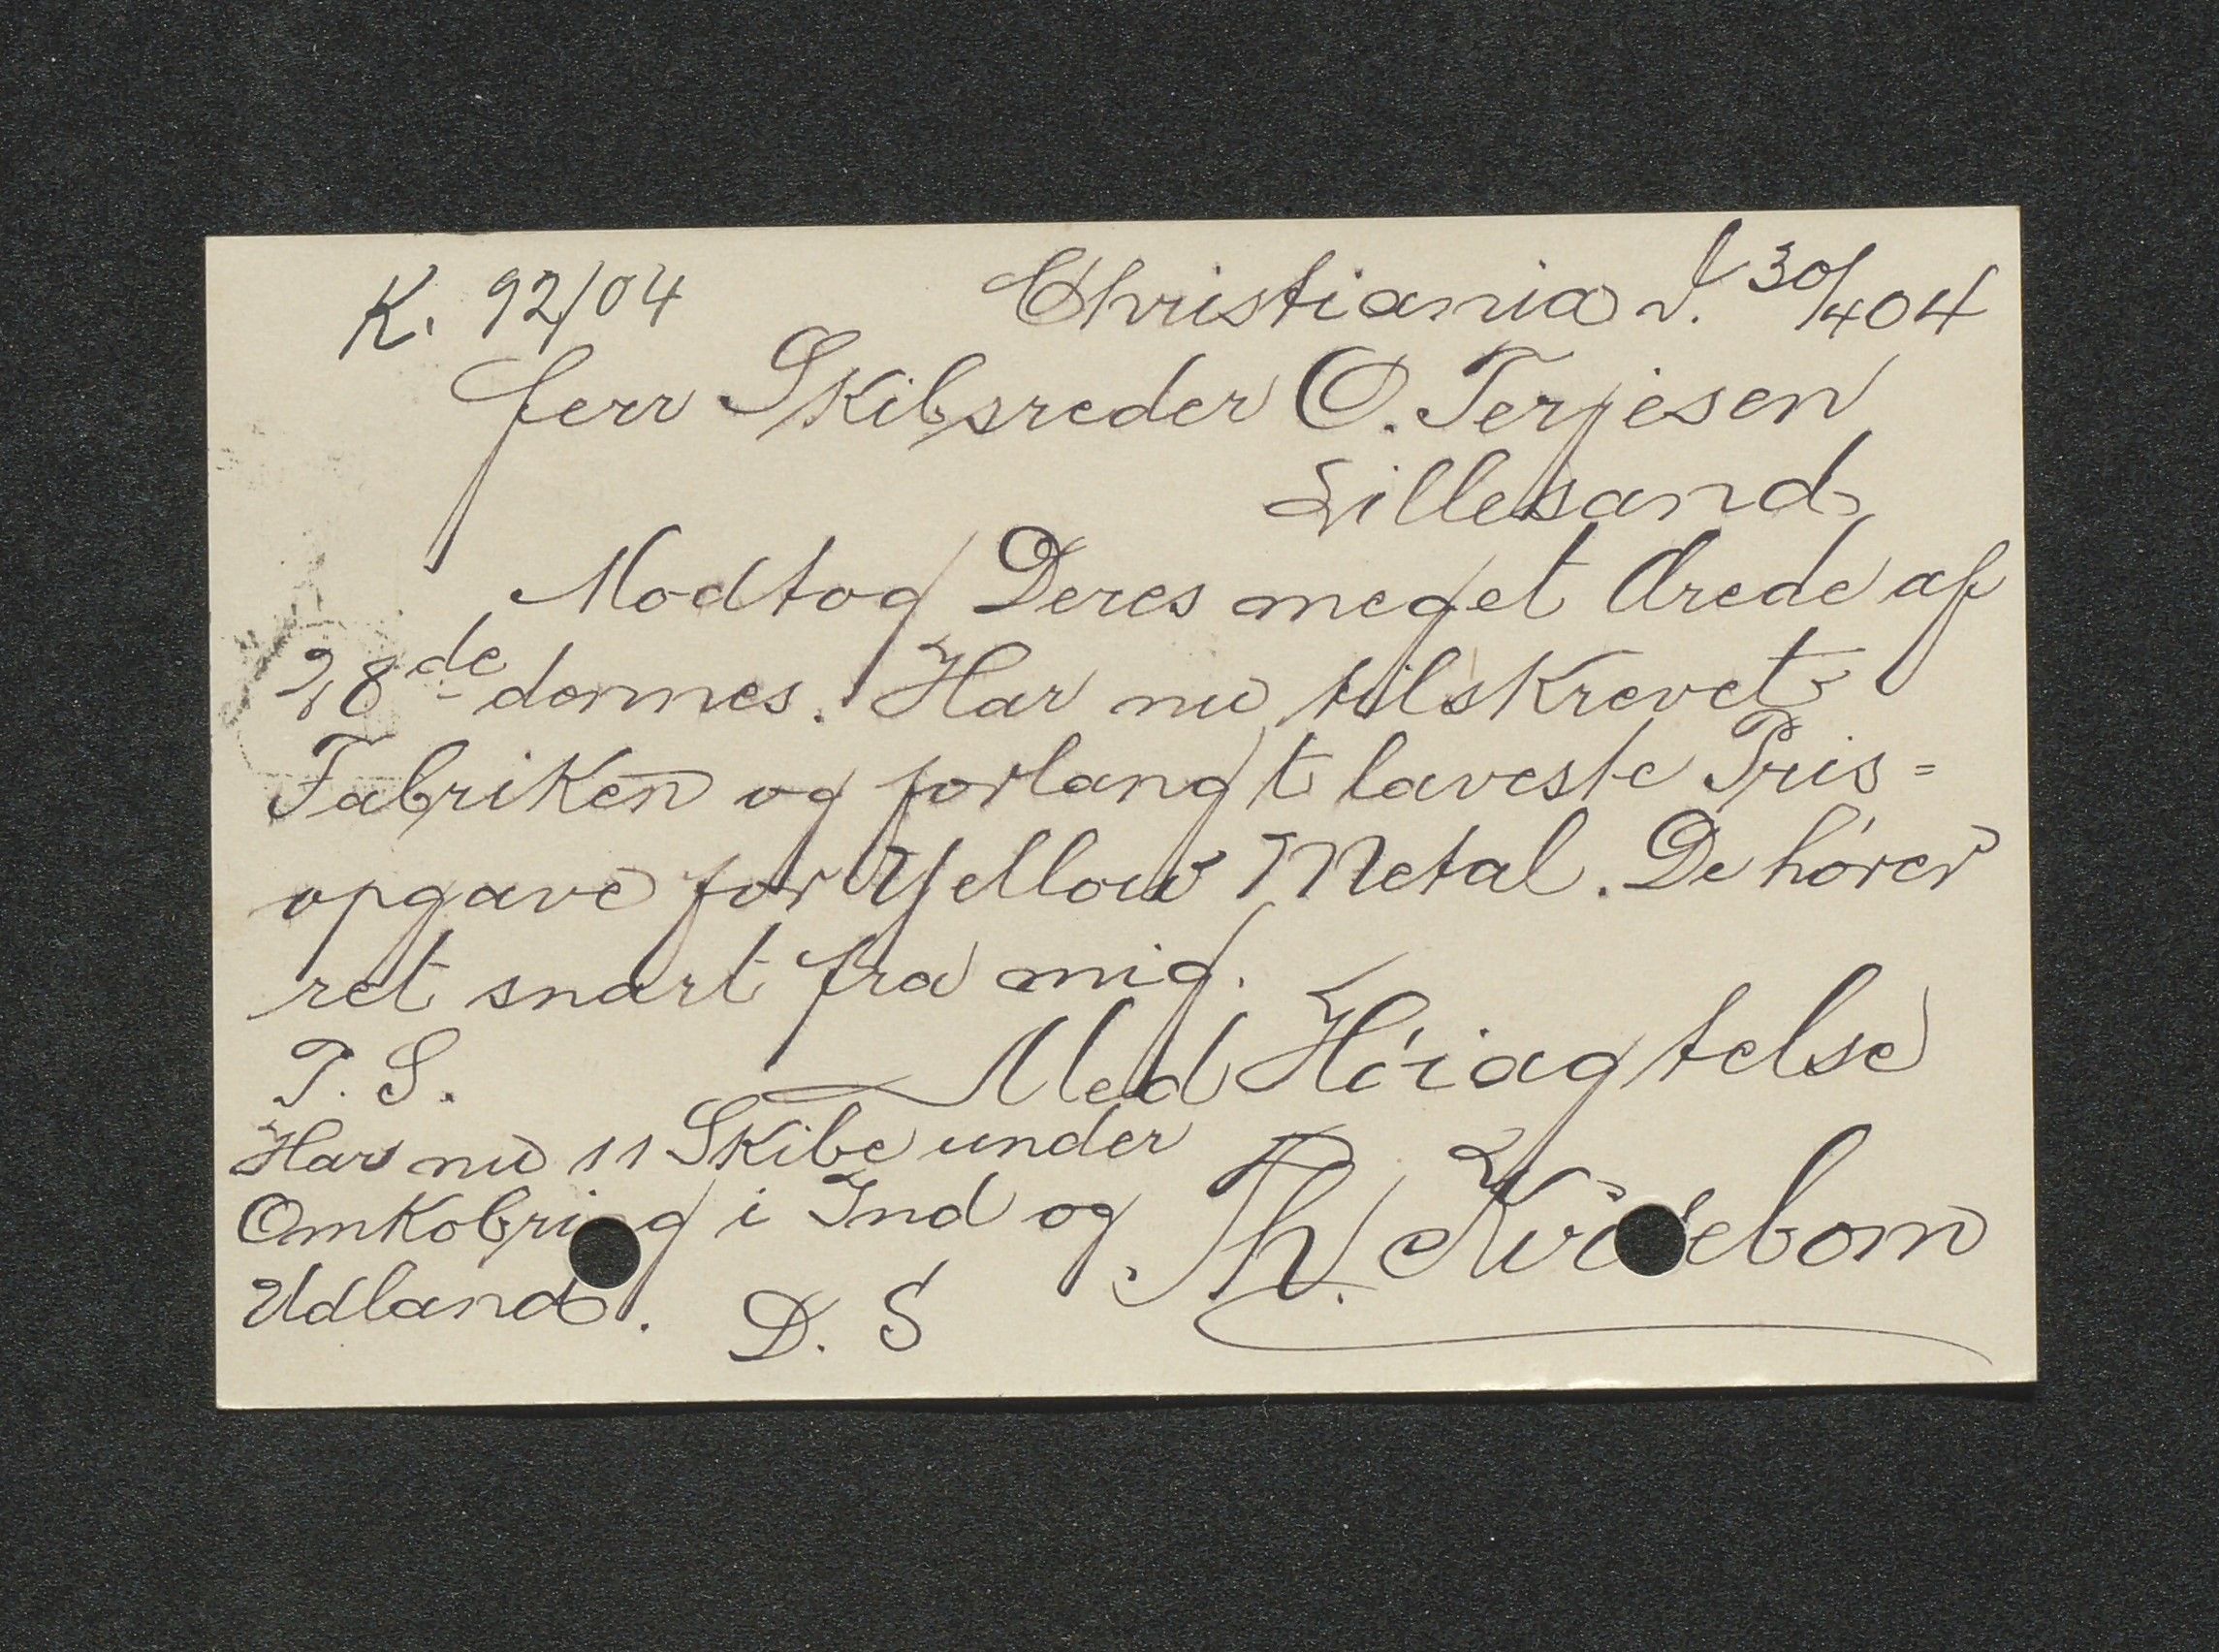 K. 92/04 Christiania d. 30/4 04
Herr Skibsreder O. Terjesen
Lillesand
Modtog Deres meget Ærede af
28de dennes. Har nu tilskrevet
Fabriken og forlangt laveste Pris=
opgave for Yellow Metal. De hører
ret snart fra mig.
Med Høiagtelse
P. S.
Har nu 11 Skibe under
Omkobring i Ind og
Udland. D. S
Th.